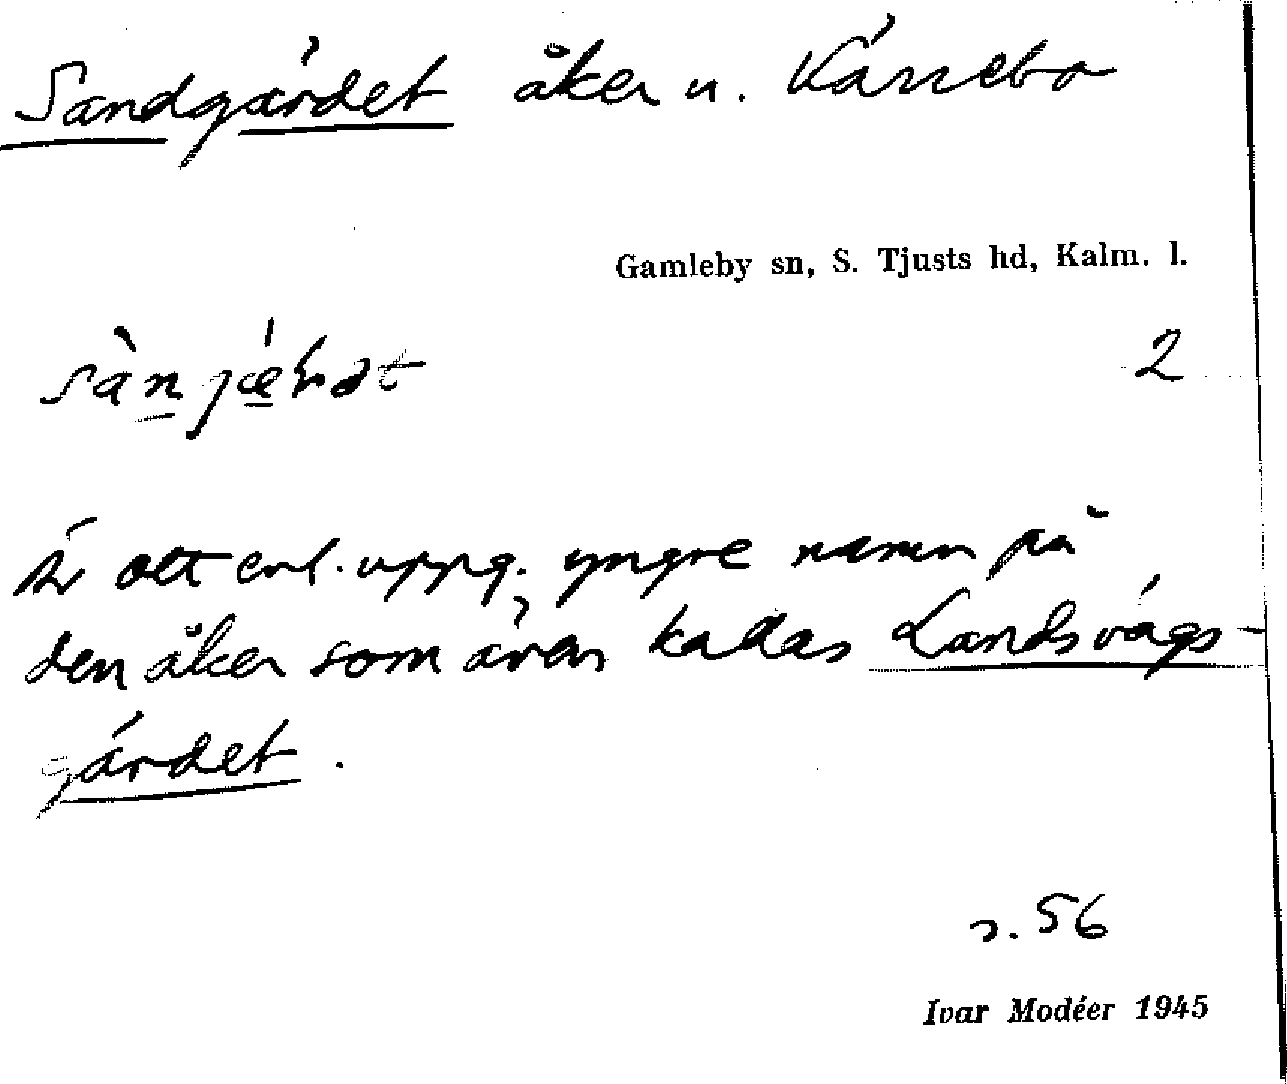 Sandgärdet åker u. Kärrebo
Gamleby sn, S. Tjusts hd, Kalm. l.
2
Är ett enl. uppg. yngre namn på
den åker som även kallas Landsvägs-
gärdet.
s. 56
Ivar Modéer 1945